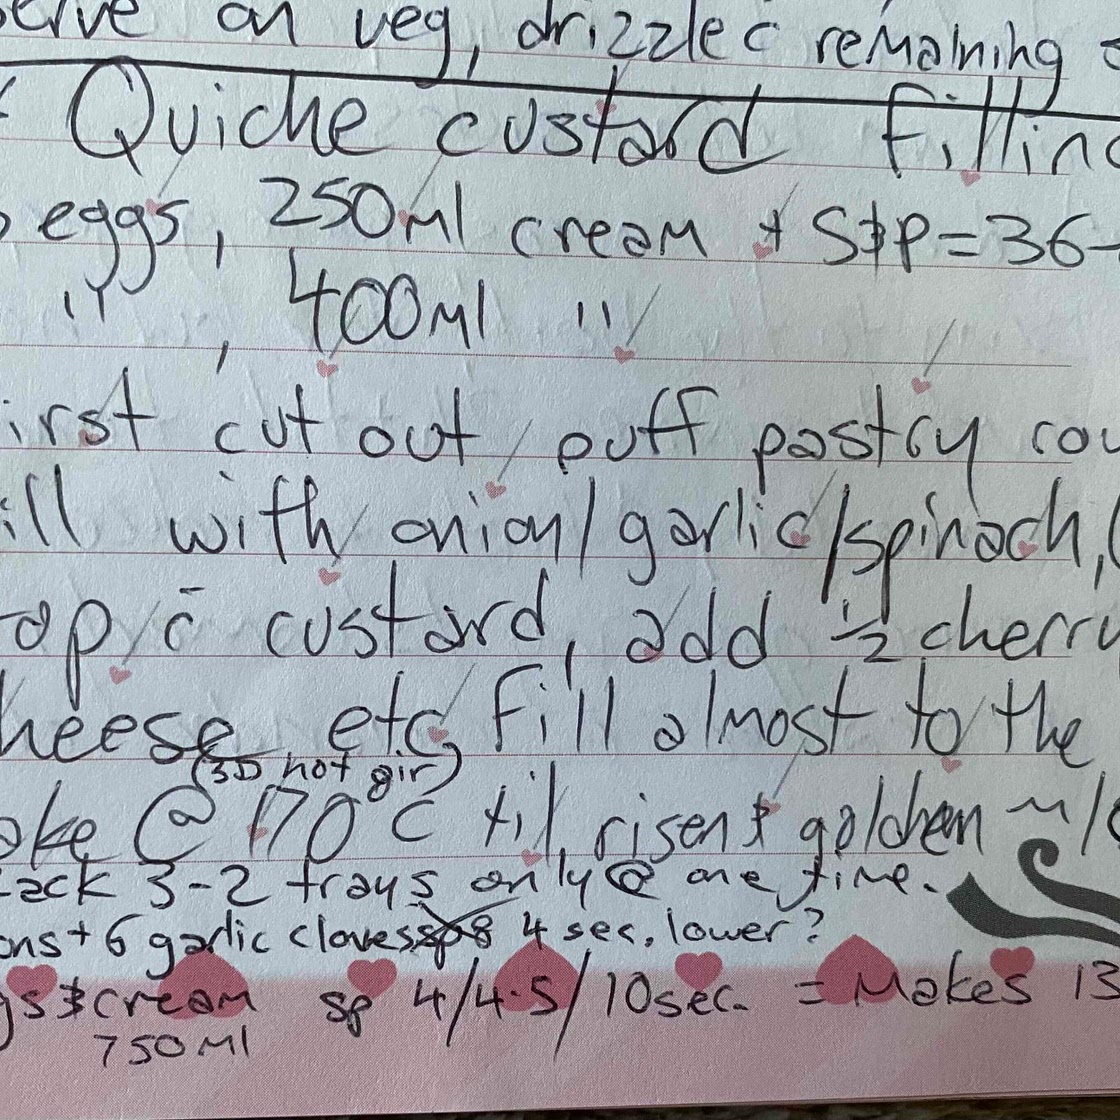 erve on veg, drizzle c̄ remaining
Quiche custard fillin
eggs, 250ml cream + S&P = 36-
" , 400ml "
irst cut out puff pastry cou
ill with onion/garlic/spinach, (
op c̄ custard, add ½ cherry
heese, etc, fill almost to the
(3D hot air)
ake @ 170°C til risen & golden ~ 1/
tack 3-2 trays only @ one time.
ons + 6 garlic cloves 4 sec. lower?
gs & cream sp 4/4.5/10sec. = Makes 13
750ml